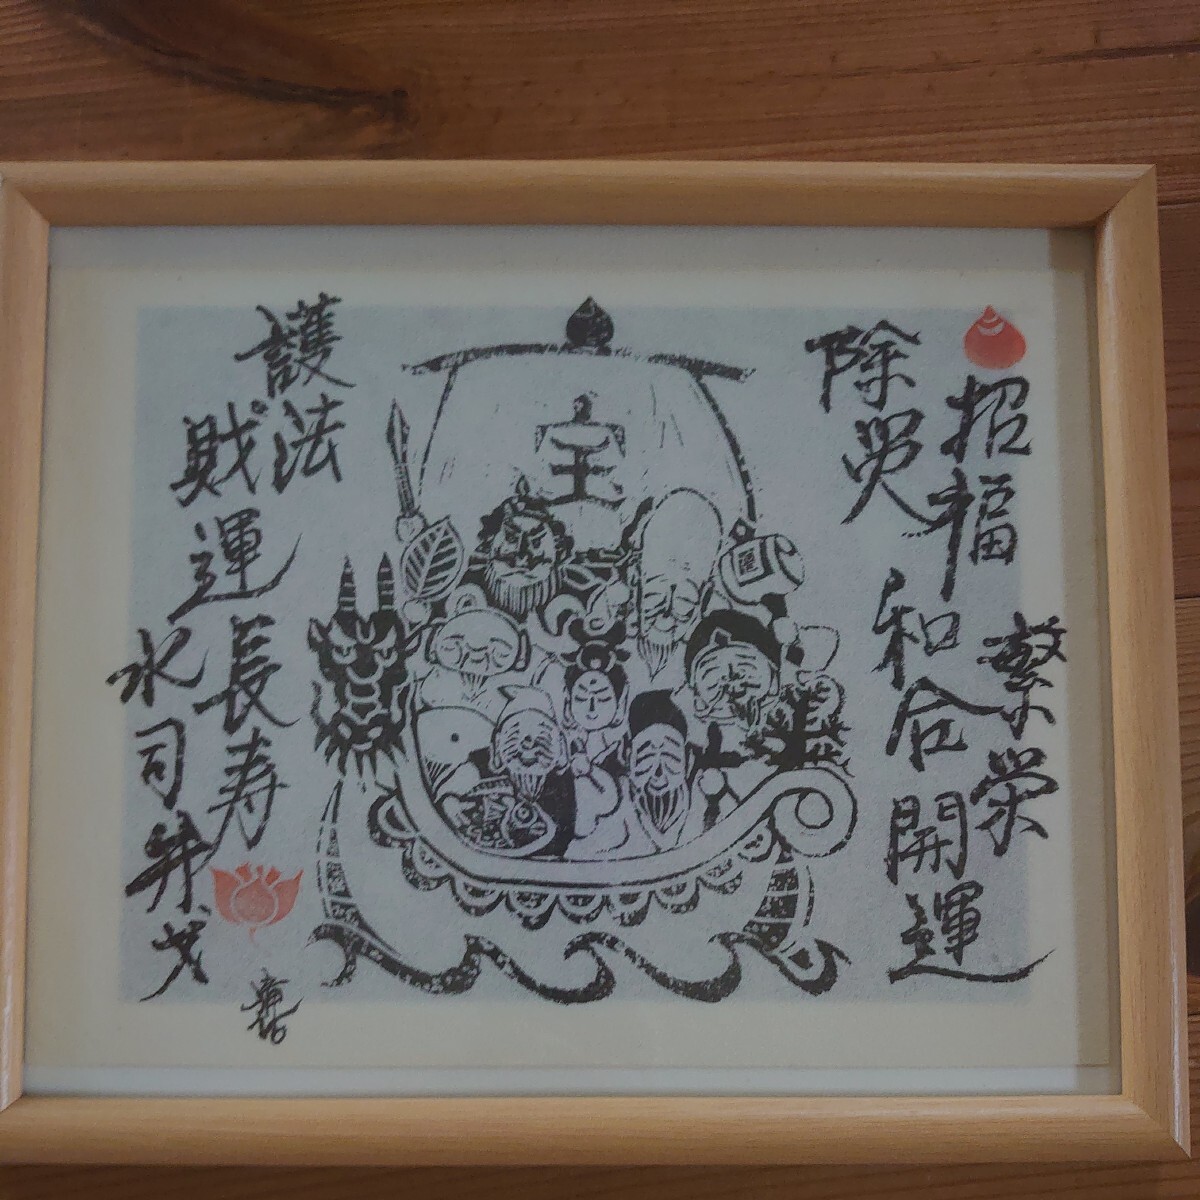 招福
繁栄
除災
和合
開運
宝
護法
財運
長寿
水司